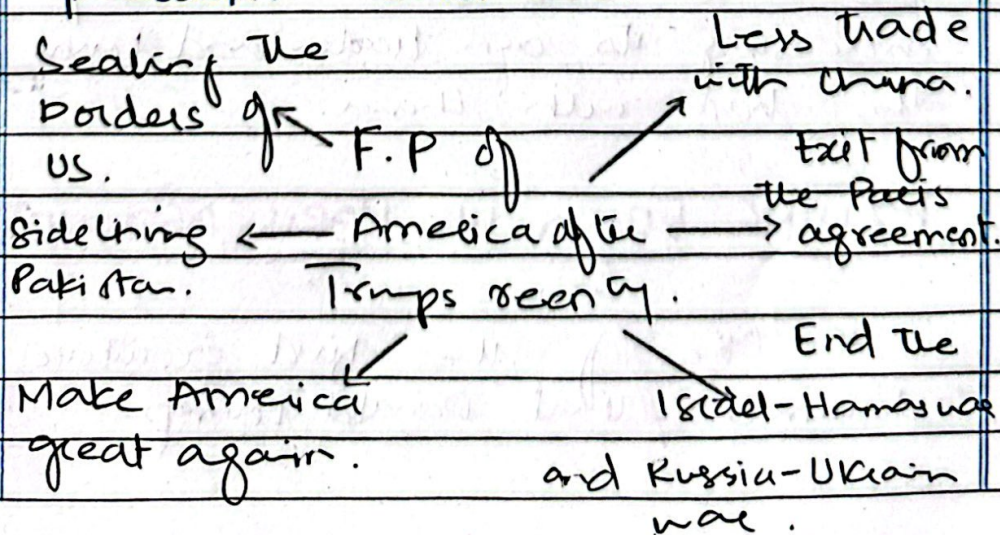 Sealing the
borders of
US.
Less trade
with China.
F.P of
America after
Trumps reentry.
Exit from
the Paris
agreement.
Sidelining
Pakistan.
Make America
great again.
End the
Israel-Hamas war
and Russia-Ukrain
war.